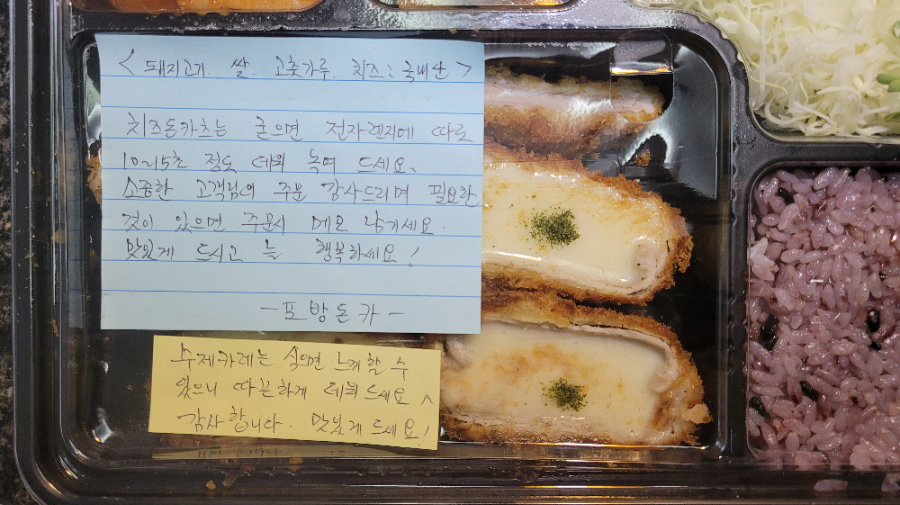 < 돼지고기 쌀. 고춧가루 치즈 : 국내산 >
치즈돈카츠는 굳으면 전자렌지에 따로
10~15초 정도 데워 녹여 드세요.
소중한 고객님의 주문 감사드리며 필요한
것이 있으면 주문시 메모 남겨세요.
맛있게 드시고 늘 행복하세요!
- 포방돈카 -
수제카레는 식으면 느끼할 수
있으니 따끈하게 데워드세요 ^
감사합니다. 맛있게드세요!